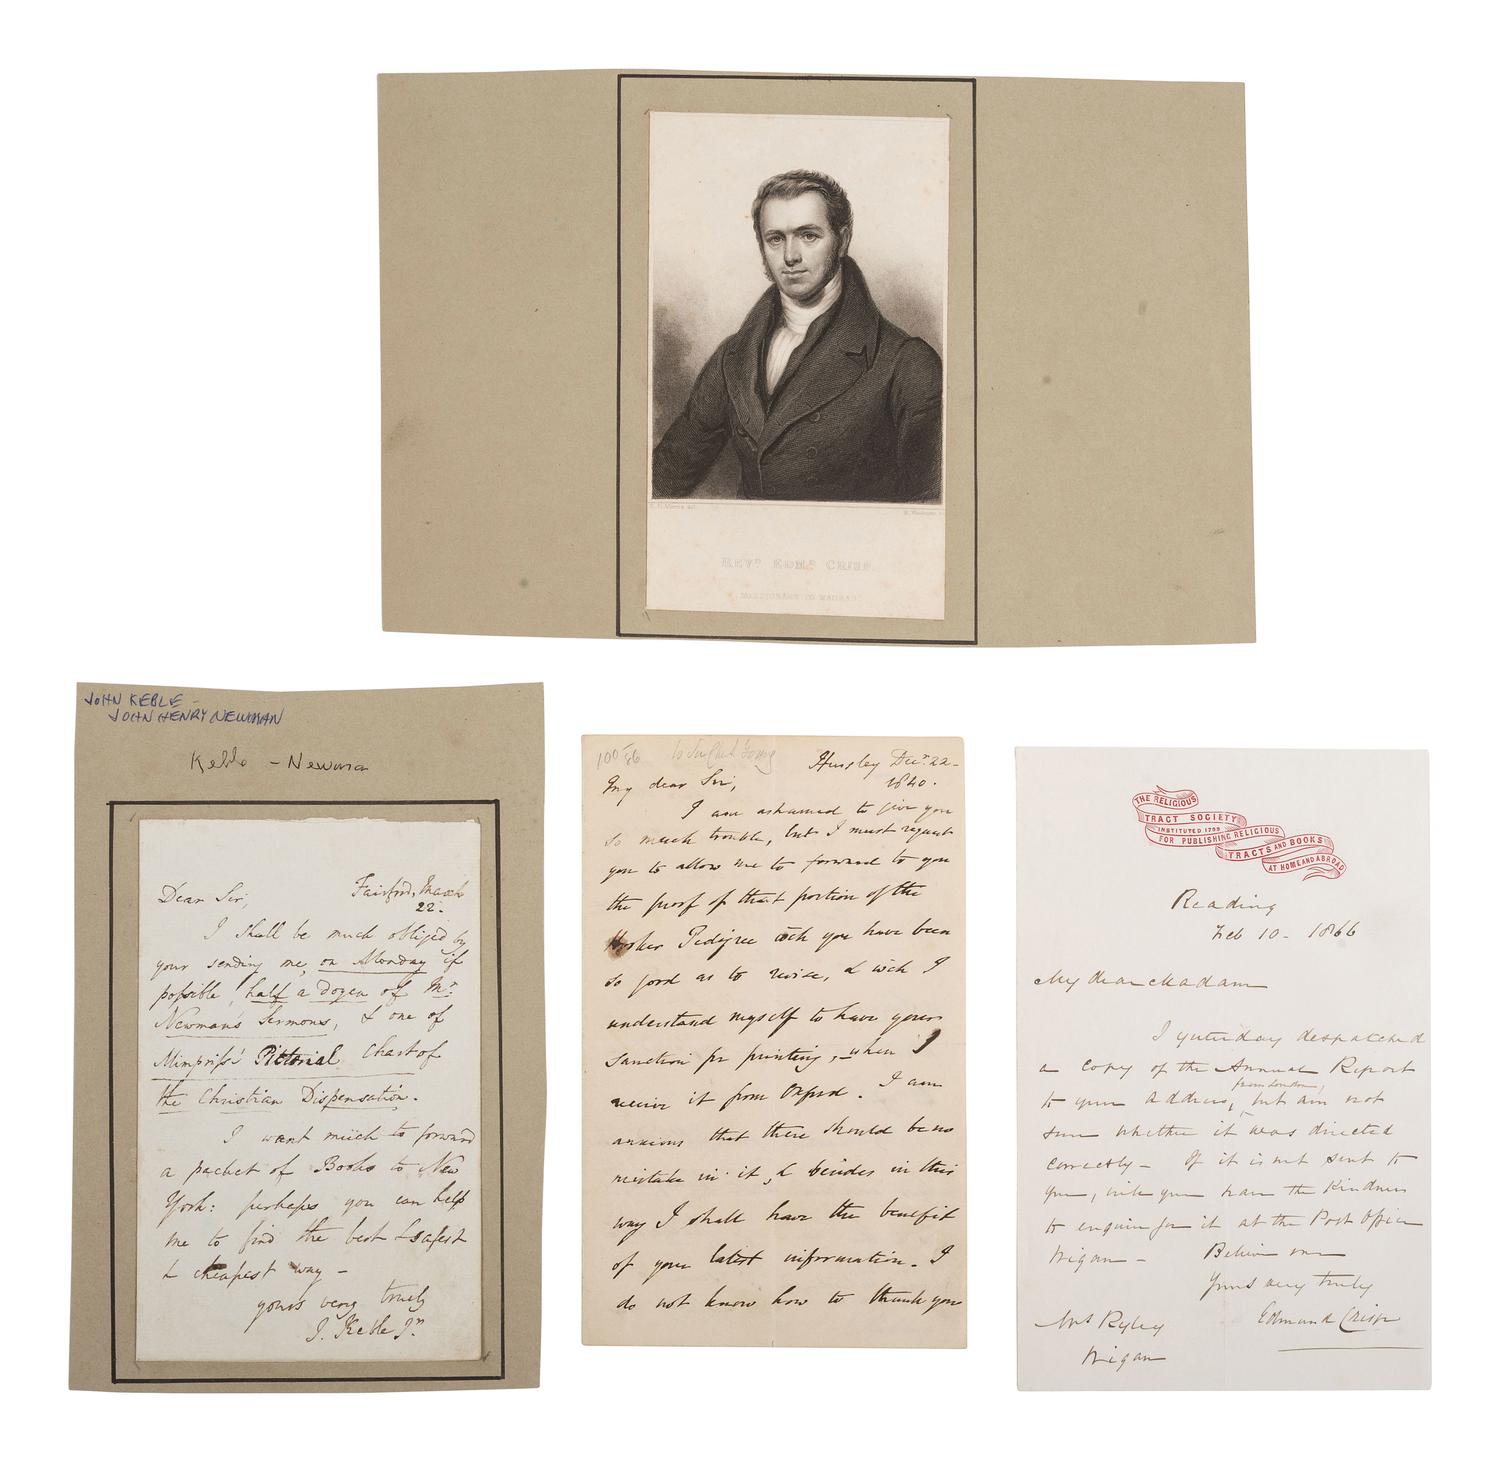 REVD. EDMD. CRISP.
MISSIONARY TO MADRAS.
JOHN KEBLE -
JOHN HENRY NEWMAN
Keble - Newman
Fairford, March
22.
Dear Sir,
I shall be much obliged by
your sending me, on Monday if
possible, half a dozen of Mr.
Newman's Sermons, & one of
Mimpriss' Pictorial Chart of
the Christian Dispensation.
I want much to forward
a packet of Books to New
York: perhaps you can help
me to find the best & safest
& cheapest way -
yours very truly
J. Keble Jr.
Hursley Decr. 22-
1840.
My dear Sir,
I am ashamed to give you
so much trouble, but I must request
you to allow me to forward to you
the proof of that portion of the
Hooker Pedigree wch you have been
so good as to revise, & wich I
understand myself to have your
sanction for printing, when I
receive it from Oxford. I am
anxious that there should be no
mistake in it, & besides in this
way I shall have the benefit
of your latest information. I
do not know how to thank you
THE RELIGIOUS
TRACT SOCIETY
INSTITUTED 1799
FOR PUBLISHING RELIGIOUS
TRACTS AND BOOKS
AT HOME AND ABROAD
Reading
Feb 10 - 1866
My dear Madam
I yesterday despatched
a copy of the Annual Report
from London,
to your address, but am not
sure whether it was directed
correctly - If it is not sent to
you, will you have the kindness
to enquire for it at the Post Office
Wigan - Believe me
Yours very truly
Edmund Crisp
Mrs Ryley
Wigan